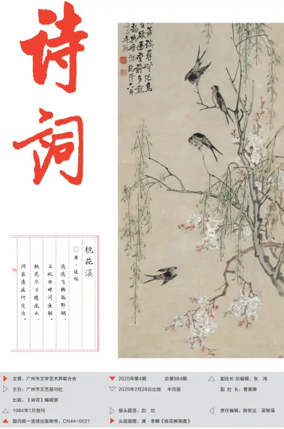 诗词
桃花溪
◎唐·张旭
隐隐飞桥隔野烟，
石矶西畔问渔船。
桃花尽日随流水，
洞在清溪何处边。
主管：广州市文学艺术界联合会
主办：广州市文艺报刊社
出版：《诗词》编辑部
1984年1月创刊
国内统一连续出版物号：CN44-0021
2025年第4期 总第984期
2025年2月28日出版 半月报
报头题签：启 功
头版题图：清·李鱓《桃花柳燕图》
副社长 总编辑：张 鸿
副 社 长：黄春辉
责任编辑：陈贺达 梁智强